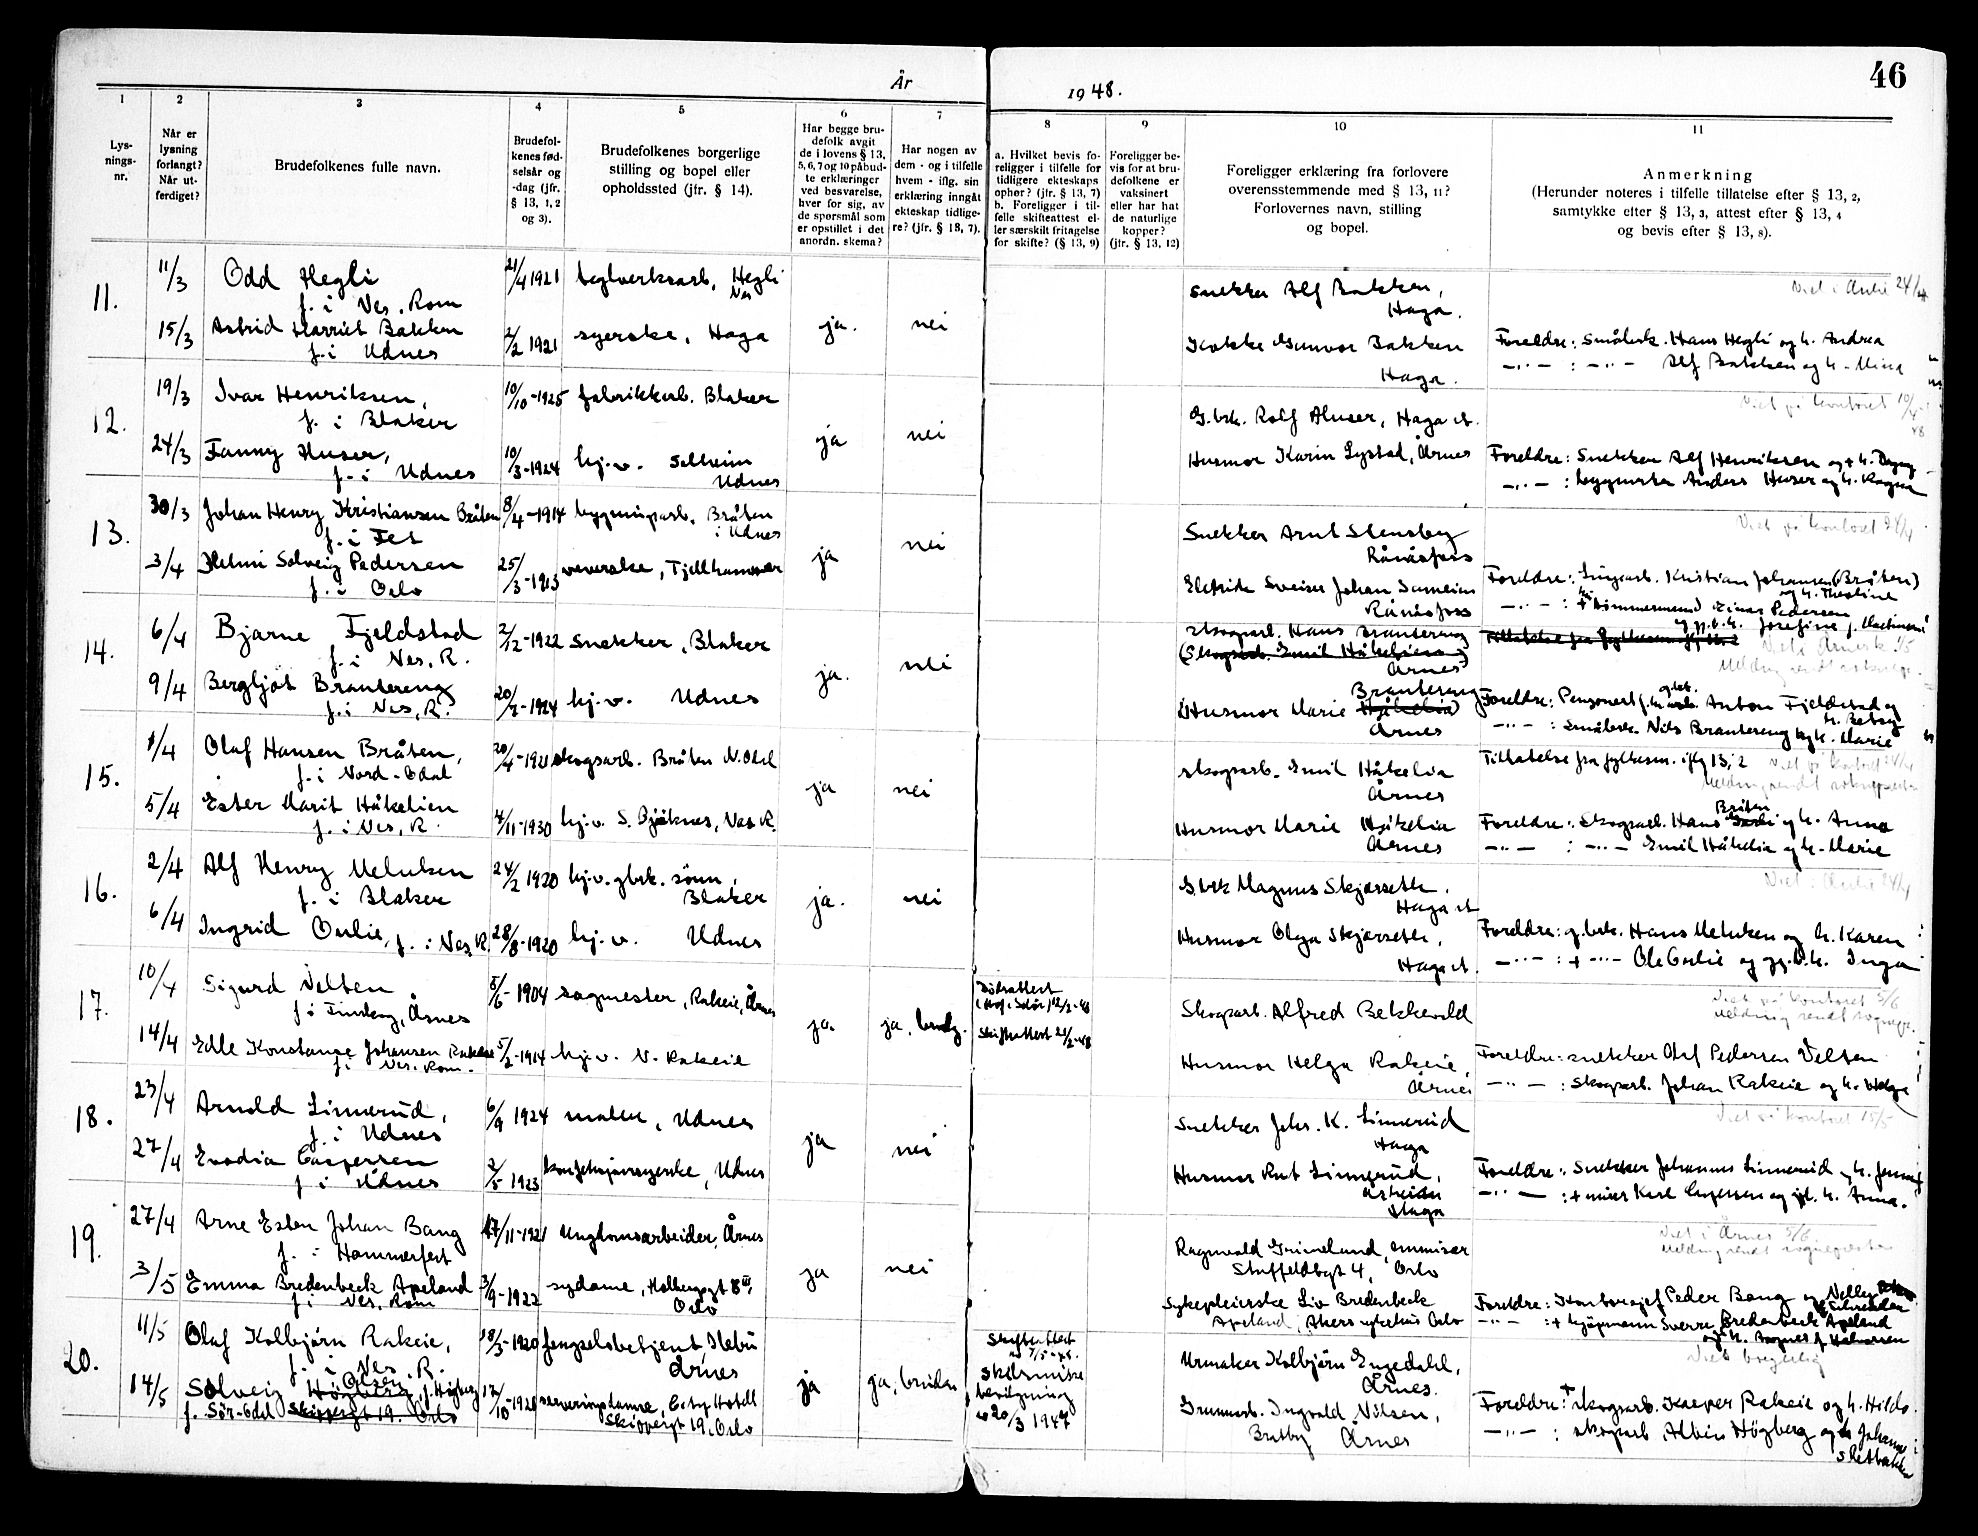 46
År 1948.
1 2 3 4 5 6 7 8 9 10 11
Lys-
nings-
nr.
Når er
lysning
forlangt?
Når ut-
ferdiget?
Brudefolkenes fulle navn.
Brudefol-
kenes fød-
selsår og
-dag (jfr.
§ 13, 1, 2
og 3).
Brudefolkenes borgerlige
stilling og bopel eller
opholdssted (jfr. § 14).
Har begge bru-
defolk avgit
de i lovens § 13,
5, 6, 7 og 10 påbud-
te erklæringer
ved besvarelse,
hver for sig, av
de spørsmål som
er opstillet i det
anordn. skema?
Har nogen av
dem - og i tilfelle
hvem - iflg. sin
erklæring inngåt
ekteskap tidlige-
re? (jfr. § 13, 7).
a. Hvilket bevis fo-
religger i tilfelle for
tidligere ekteskaps
ophør? (jfr. § 13, 7)
b. Foreligger i til-
felle skifteattest el-
ler særskilt fritagelse
for skifte? (§ 13, 9)
Foreligger be-
vis for at bru-
defolkene er
vaksinert
eller har hat
de naturlige
kopper?
(jfr. § 13, 12)
Foreligger erklæring fra forlovere
overensstemmende med § 13, 11?
Forlovernes navn, stilling
og bopel.
Anmerkning
(Herunder noteres i tilfelle tillatelse efter § 13, 2,
samtykke efter § 13, 3, attest efter § 13, 4
og bevis efter § 13, 8).
11. 11/3 Odd Hegli 21/4 1921 teglverksarb., Hegli Snekker Alf Bakken, Viet i Aulie 24/4
f. i Nes, Rom Nes ja. nei Haga.
15/3 Astrid Harriet Bakken 2/2 1921 syerske, Haga Kokke Gunvor Bakken Foreldre: Småbrk. Hans Hegli og h. Andrea
f. i Udnes Haga. —..— : —..— Alf Bakken og h. Mina
12. 19/3 Ivar Henriksen, 10/10-1925 fabrikkarb. Blaker G.brk. Rolf Huser, Haga st. Viet på kontoret 10/4 48
f. i Blaker ja nei
24/3 Fanny Huser, 10/3-1924 hj.v. Solheim Husmor Karin Lystad, Årnes Foreldre: Snekker Alf Henriksen og h. Dagny
f. i Udnes Udnes —..— : bygnmstr Anders Huser og h. Ragna
13. 30/3 Johan Henry Kristiansen Bråten 8/4-1914 bygningsarb. Bråten Snekker Arnt Stensby Viet på kontoret 24/4
f. i Fet i Udnes ja nei Rånåsfoss
3/4 Helmi Solveig Pedersen 25/3-1913 veverske, Fjellhammer Elektrik. Sveiser Johan Foreldre: Kristian Johansen (Bråten)
f. i Oslo Rånåsfoss og h. Theoline
—..— : + tømmermand Einar Pedersen
Josefine f.
14. 6/4 Bjarne Fjeldstad 2/12-1922 Snekker, Blaker skogsarb. Hans Brautereng Tillatelse fra
f. i Nes, R. ja. nei (Skogsarb. Emil Håkelien)
Årnes
9/4 Bergljot Brautereng 20/2-1924 hj.v. Udnes Husmor Marie Brautereng Foreldre: Pensjonert Anton Fjeldstad og
f. i Nes, R. Årnes h. Betsy
—..— : Småbrk. Nils Brautereng og h. Marie
15. 1/4 Olaf Hansen Bråten, 20/4-1921 skogsarb. Bråten N. Odal skogsarb. Emil Håkelia Tillatelse fra fylkesm. iflg 13, 2
f. i Nord-Odal ja nei Årnes
5/4 Ester Marit Håkelien 4/11-1930 hj.v. S. Nes R. Husmor Marie Håkelia Foreldre: skogsarb. Hans Bråten og h. Anna
f. i Nes, R. Årnes —..— : —..— Emil Håkelia og h. Marie
16. 2/4 Alf Henry Melnken 24/2 1920 hj.v. gbrk. sønn, Gbrk Magnus Skjørseth, Viet i Aulie 24/4
f. i Blaker Blaker ja. nei Haga st
6/4 Ingrid Oulie, f. i Nes, R. 28/8-1920 hj.v. Udnes Husmor Olga Skjørseth, Foreldre: g.brk. Hans Melnken og h. Karen
Haga st. —..— : + —..— Ole Oulie og gj.l.h. Inga
17. 10/4 Sigurd Velten 5/6-1904 sagmester, Rakeie, Årnes Dødsattest Skogsarb. Alfred Bekkevold Viet på kontoret 5/6
Årnes ja. ja, brudg. Skifteattest 21/2-48
14/4 Edle Konstanse Johansen Rakeie 5/2-1914 hj.v. N. Rakeie Husmor Helga Rakeie, Foreldre: snekker Olaf Pedersen Velten
f. i Nes, Rom. Årnes —..— : skogsarb. Johan Rakeie og h. Helga
18. 23/4 Arnold Linnerud, 6/9 1924 maler, Udnes Snekker Johs. K. Linnerud Viet på kontoret 15/5
f. i Udnes ja nei Haga
27/4 Evodia Caspersen 2/5 1923 konfeksjonssyerske, Udnes Husmor Rut Linnerud, Foreldre: Snekker Johannes Linnerud og h. Jenny
f. i Udnes Haga —..— : + murer Karl Caspersen og gjl. h. Anna.
19. 27/4 Arne Esten Johan Bang 17/11-1921 Ungdomsarbeider, Årnes Ragnvald Grimelund, Viet i Årnes 5/6
f. i Hammerfest ja nei 4, Oslo
3/5 Emma Bredenbeck Apeland 3/9-1922 sydame, Holbergsgt 8 III, Sykepleierske Liv Bredenbeck Foreldre: Kontorsjef Peder Bang og Nelly
f. i Nes, Rom Oslo Apeland, Akers sykehus Oslo —..— : + kjøpmann Sverre Bredenbeck Apeland
og h. Ragna f. Halvorsen
20. 11/5 Olaf Kolbjörn Rakeie, 18/5-1920 fengselsbetjent, Ilebu Skifteattest Urmaker Kolbjörn Engedahl, Viet borgerlig
f. i Nes, R. Årnes ja ja, bruden skilsmisse Årnes.
14/5 Solveig Olsen, f. Högberg 17/10-1920 serveringsdame, bevilgning Grunnarb. Ingvald Nilsen, Foreldre: + skogsarb. Kasper Rakeie og h. Hilda.
f. Sör-Odal Skippergt 19. Oslo Skippergt 19, Oslo 20/3 1947 Bratby Årnes —..— : skogsarb. Albin Högberg og h. Johanne